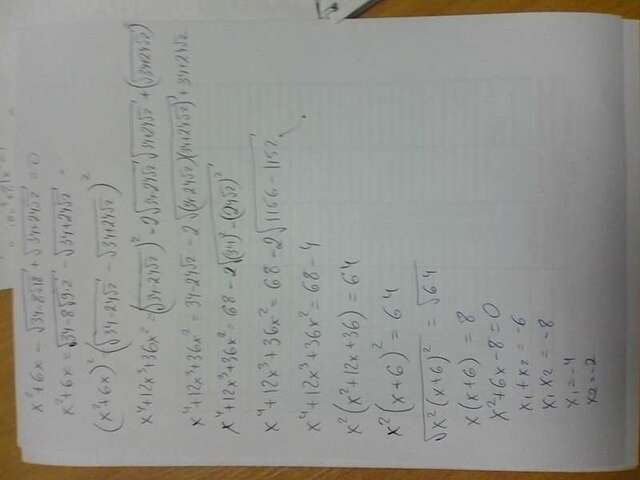 x² + 6x − √(34−8√18) + √(34+24√2) = 0
x² + 6x = √(34−8√(9·2)) − √(34+24√2) =
(x² + 6x)² = (√(34−24√2) − √(34+24√2))²
x⁴ + 12x³ + 36x² = (√(34−24√2))² − 2√(34−24√2) √(34+24√2) + (√(34+24√2))²
x⁴ + 12x³ + 36x² = 34 − 24√2 − 2√((34−24√2)(34+24√2)) + 34 + 24√2
x⁴ + 12x³ + 36x² = 68 − 2√((34)² − (24√2)²)
x⁴ + 12x³ + 36x² = 68 − 2√(1156 − 1152)
x⁴ + 12x³ + 36x² = 68 − 4
x²(x² + 12x + 36) = 64
x²(x + 6)² = 64
√(x²(x+6)²) = √64
x(x+6) = 8
x² + 6x − 8 = 0
x₁ + x₂ = −6
x₁ x₂ = −8
x₁ = −4
x₂ = −2